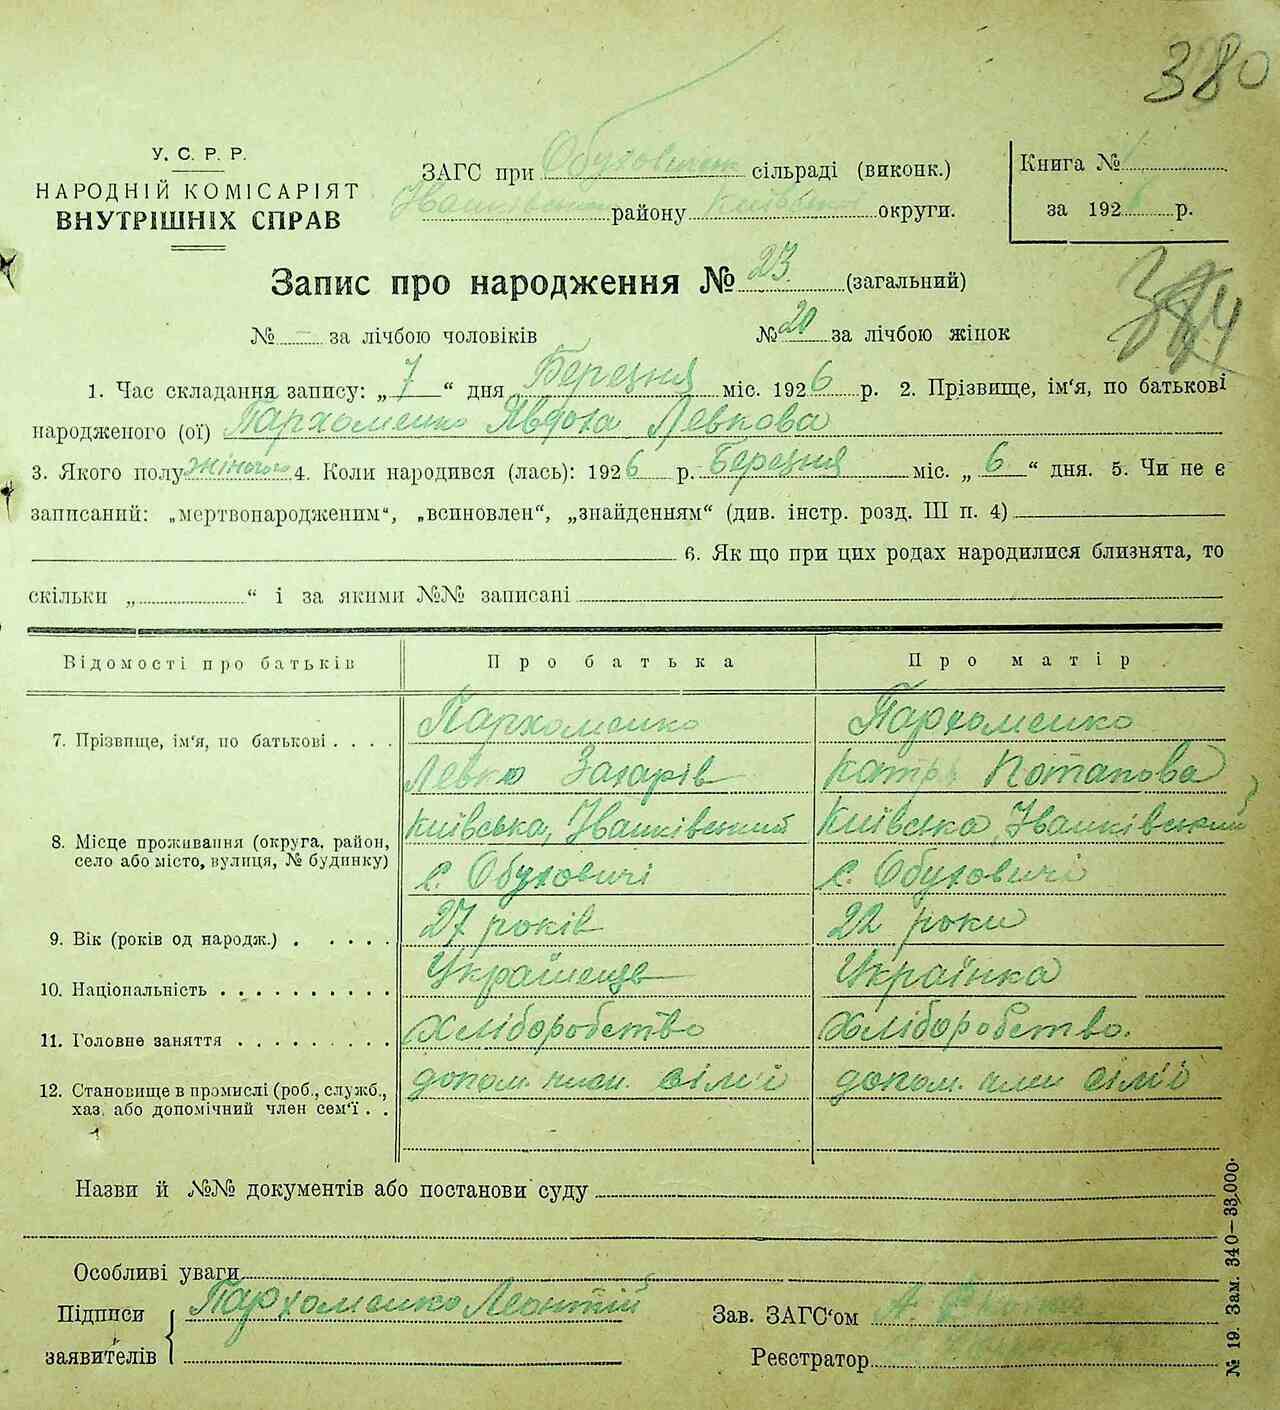 380
У. С. Р. Р.
НАРОДНІЙ КОМІСАРІЯТ
ВНУТРІШНІХ СПРАВ
ЗАГС при Обуховицькій сільраді (виконк.)
Іванківського району Київської округи.
Книга № 1
за 1926 р.
Запис про народження № 23 (загальний)
№ – за лічбою чоловіків № 20 за лічбою жінок
1. Час складання запису: „7“ дня Березня міс. 1926 р. 2. Прізвище, ім‘я, по батькові
народженого (ої) Пархоменко Явдоха Левкова
3. Якого полу жіночого 4. Коли народився (лась): 1926 р. Березня міс. „6“ дня. 5. Чи не є
записаний: „мертвонародженим“, „всиновлен“, „знайденням“ (див. інстр. розд. III п. 4)
6. Як що при цих родах народилися близнята, то
скільки „ “ і за якими №№ записані
Відомості про батьків Про батька Про матір
7. Прізвище, ім‘я, по батькові . . . . Пархоменко Пархоменко
Левко Захарів Катря Потапова
8. Місце проживання (округа, район, Київська, Іванківський Київська, Іванківський
село або місто, вулиця, № будинку) с. Обуховичі с. Обуховичі
9. Вік (років од народж.) . . . . . 27 років 22 роки
10. Національність . . . . . . . . . . Українець Українка
11. Головне заняття . . . . . . . . . Хліборобство Хліборобство.
12. Становище в промислі (роб., служб., допом. член. сім'ї допом. член сім'ї
хаз. або допомічний член сем‘ї . .
Назви й №№ документів або постанови суду
Особливі уваги
Підписи Пархоменко Леонтій
заявителів
Зав. ЗАГС‘ом А.
Реєстратор
№ 19. Зам. 340—33.000.